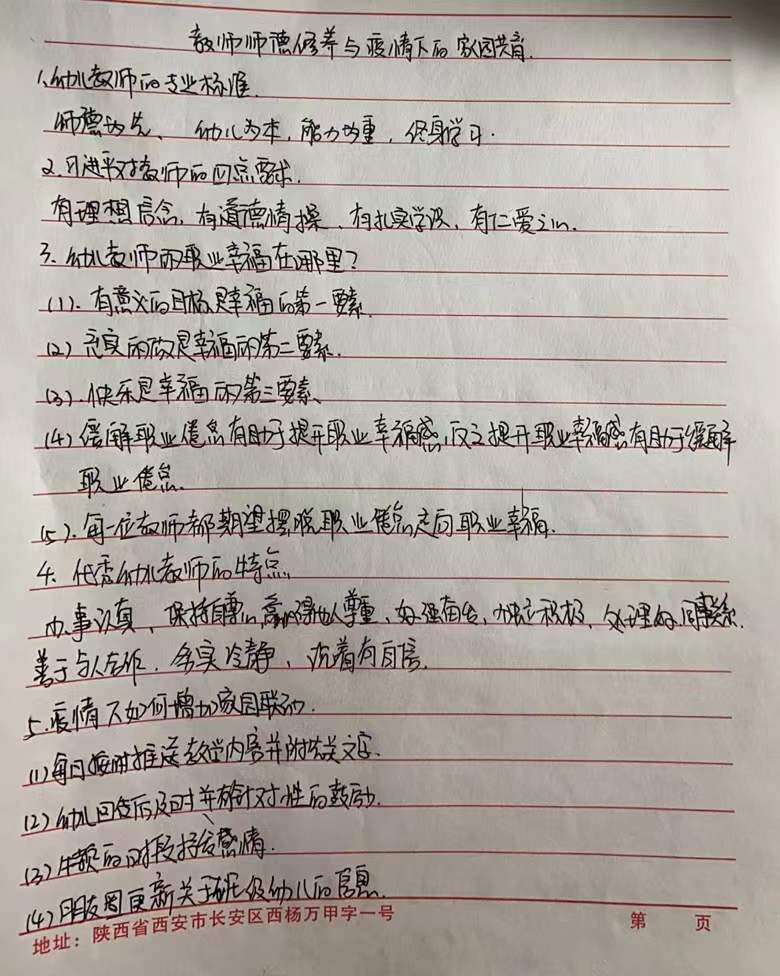 教师师德修养与疫情下的家园共育.
1、幼儿教师的专业标准.
师德为先、幼儿为本,能力为重,终身学习.
2.习近平对教师的四点要求.
有理想信念,有道德情操、有扎实学识,有仁爱之心.
3.幼儿教师的职业幸福在哪里?
(1).有意义的目标是幸福的第一要素.
(2)充实的是幸福的第二要素.
(3).快乐是幸福的第三要素、
(4)缓解职业倦怠有助于提升职业幸福感,反之提升职业幸福感有助于缓解
职业倦怠.
(5).每一位教师都期望摆脱职业倦怠走向职业幸福.
4.优秀幼儿教师的特点.
办事认真、保持自尊心,赢得他人尊重、好强自信,独立积极、处理好同事关系.
善于与人合作.务实冷静,沉着有自信.
5.疫情下如何增加家园联动.
(1)每日按时推送教学内容并附文字.
(2)幼儿回复后及时并有针对性的鼓励.
(3)的时段感情.
(4)朋友圈更新关于班级幼儿的信息.
地址:陕西省西安市长安区西杨万甲字一号
第 页